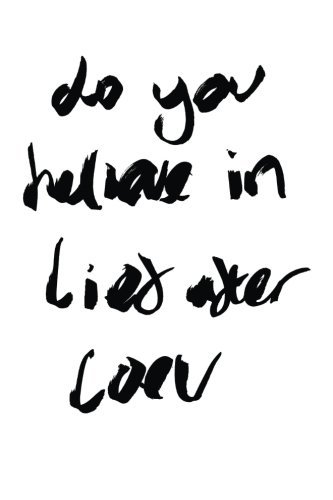 do you
believe in
lies after
loev